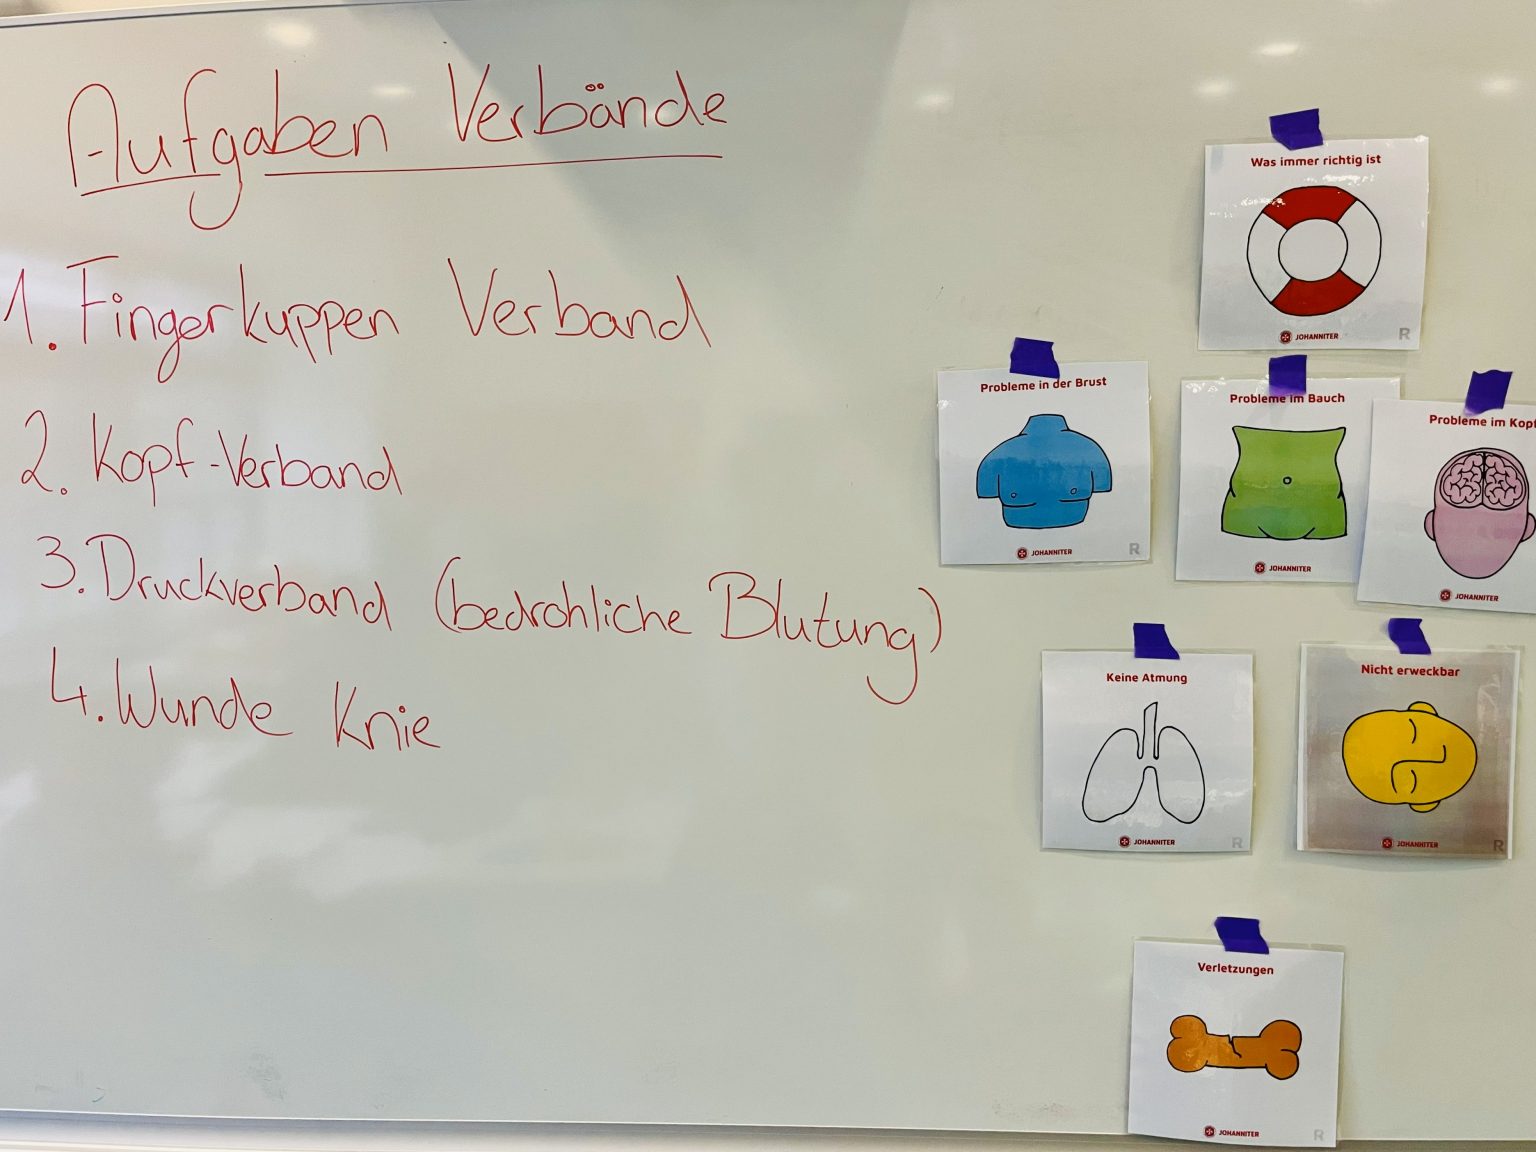 Aufgaben Verbände
1. Fingerkuppen Verband
2. Kopf-Verband
3. Druckverband (bedrohliche Blutung)
4. Wunde Knie
Was immer richtig ist
JOHANNITER
R
Probleme in der Brust
JOHANNITER
R
Probleme im Bauch
JOHANNITER
Probleme im Kopf
JOHANNITER
Keine Atmung
JOHANNITER
R
Nicht erweckbar
JOHANNITER
R
Verletzungen
JOHANNITER
R